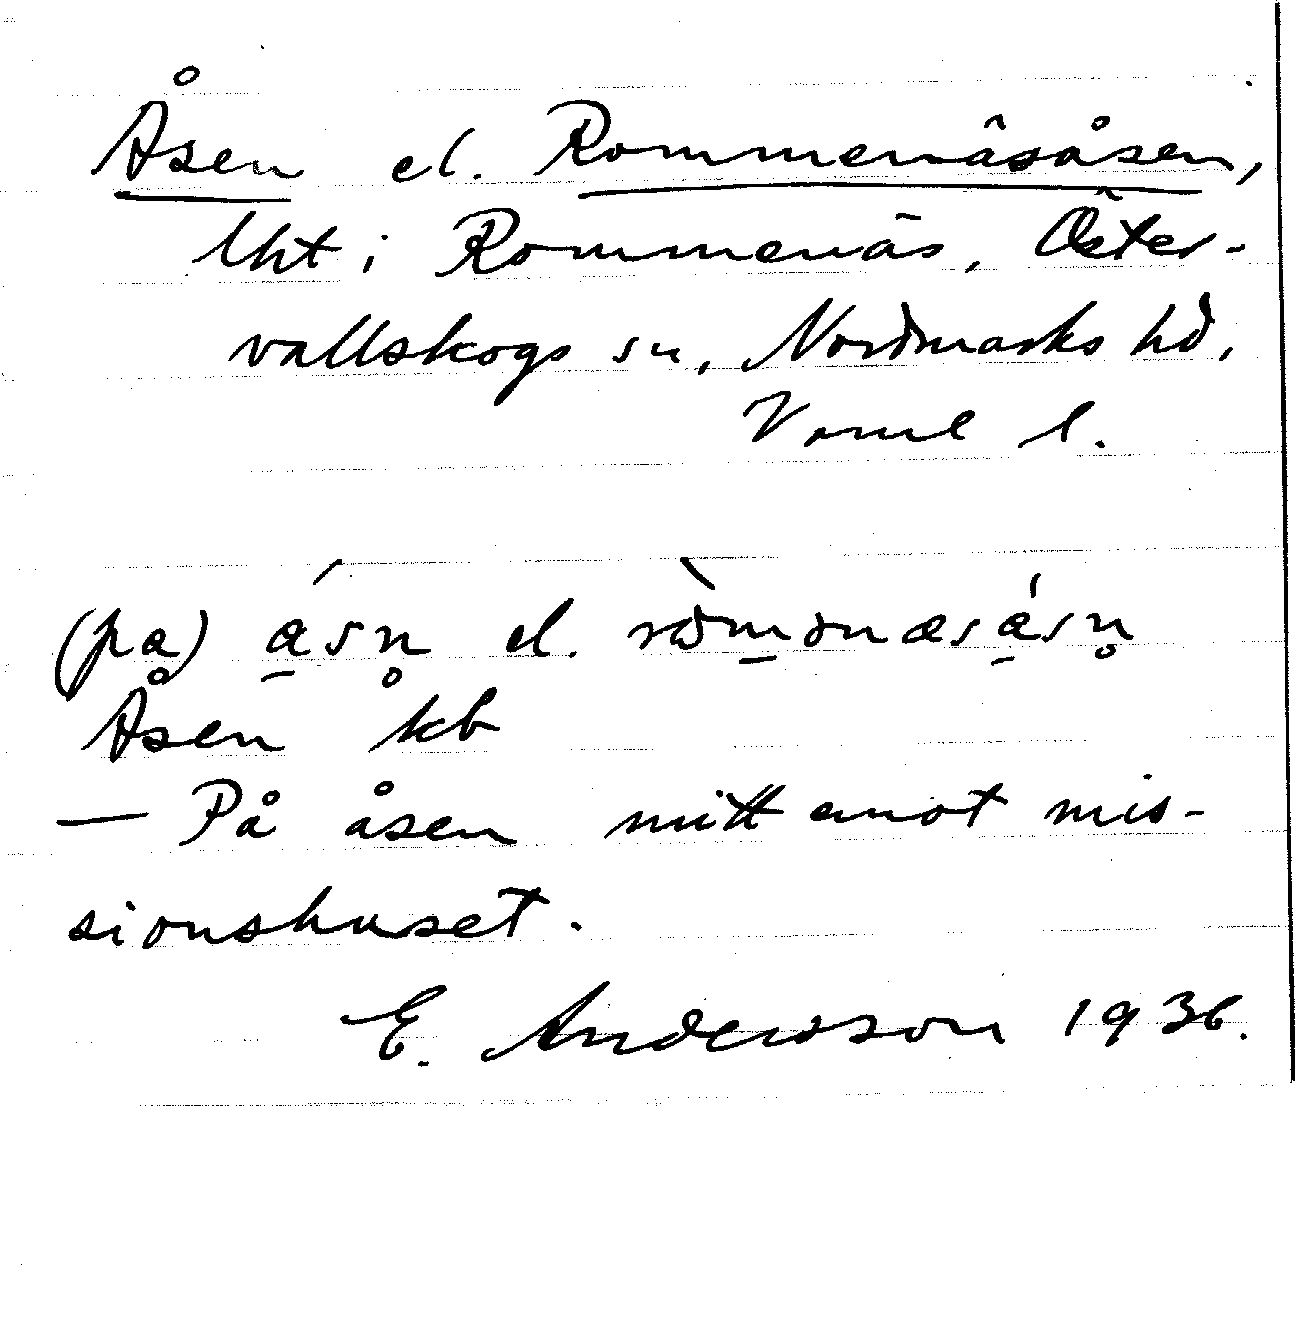 Åsen el. Rommenäsåsen,
lht i Rommenäs, Öster-
vallskogs sn, Nordmarks hd,
Värml l.
(pa) ásn̥ el. ròmənæsásn̥
Åsen kb
— På åsen mitt emot mis-
sionshuset.
E. Andersson 1936.